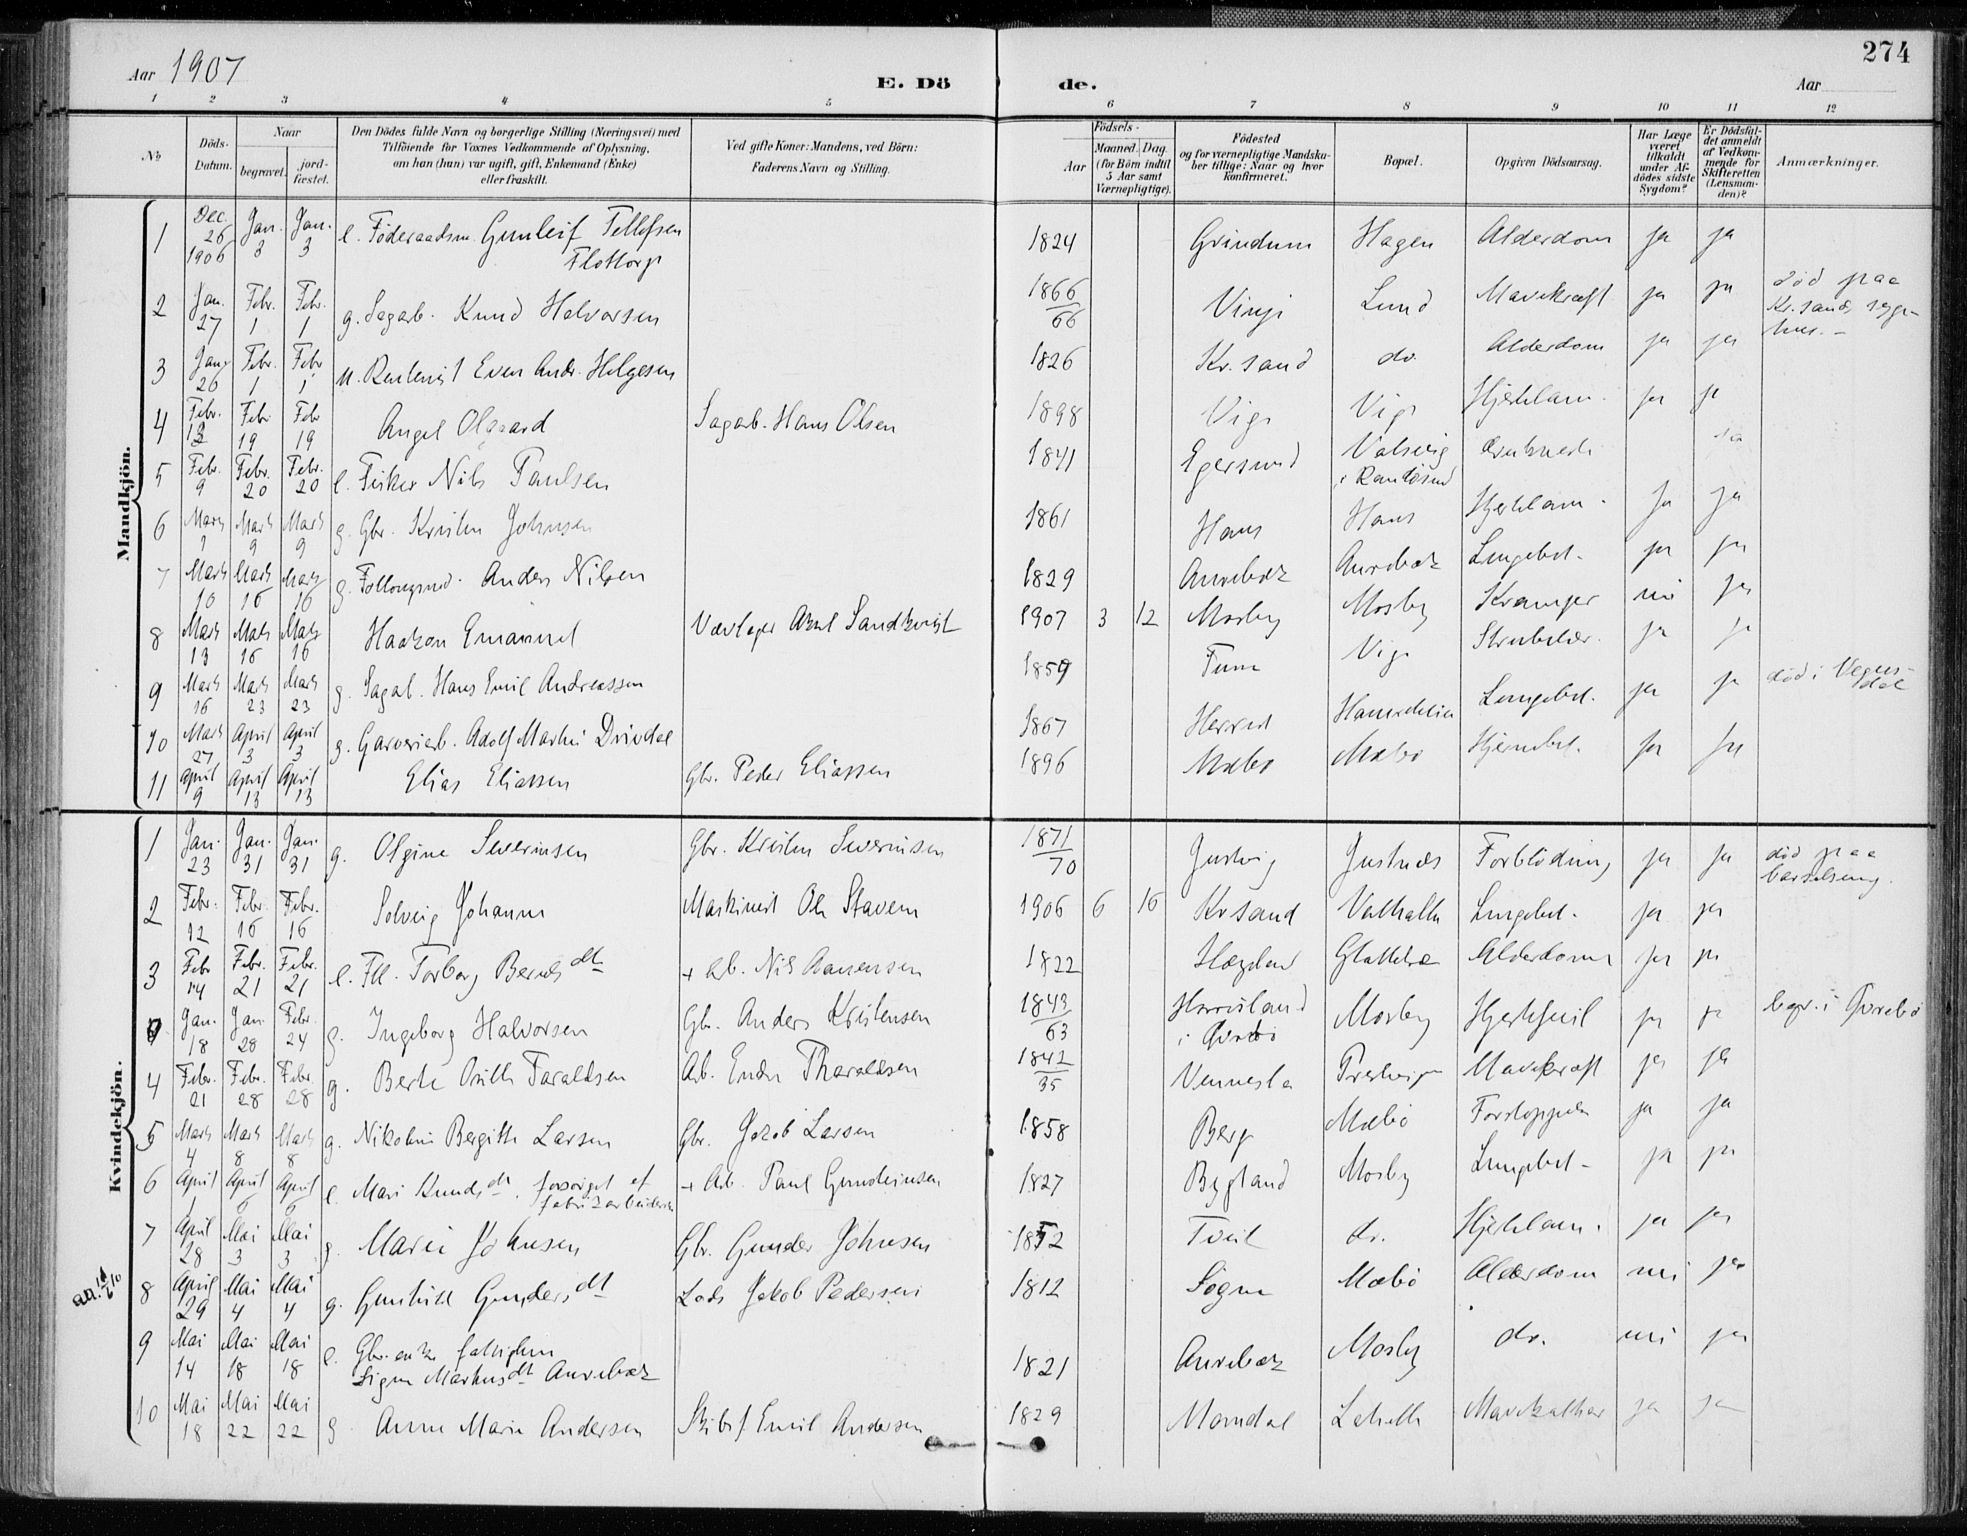 274
Aar 1907
E. Dö de.
Aar
1 2 3 4 5 6 7 8 9 10 11 12
№
Döds-Datum.
Naar
begravet.
jord-fæstet.
Den Dödes fulde Navn og borgerlige Stilling (Næringsvei) med
Tilföiende for Voxnes Vedkommende af Oplysning,
om han (hun) var ugift, gift, Enkemand (Enke)
eller fraskilt.
Ved gifte Koner: Mandens, ved Börn:
Faderens Navn og Stilling.
Födsels-
Aar
Maaned. Dag
(for Börn indtil
5 Aar samt
Værnepligtige).
Födested
og for værnepligtige Mandska-
ber tillige: Naar og hvor
konfirmeret.
Bopæl.
Opgiven Dödsaarsag.
Har Læge
været
tilkaldt
under Af-
dödes sidste
Sygdom?
Er Dödsfal-
det anmeldt
af Vedkom-
mende for
Skifteretten
(Lensman-
den)?
Anmærkninger.
Mandkjön.
1 Dec. 26 1906 Jan. 3 Jan. 3 e. Föderaadsm. Gunleif Tellefsen Flottorp 1824 Grindum Hagen Alderdom ja ja
2 Jan. 27 Febr. 1 Febr. 1 g. Sagarb. Knud Halvorsen 1866/66 Lund Mavekræft ja ja död paa Kr.sands syge-hus. -
3 Jan. 26 Febr. 1 Febr. 1 u. Rentenist Even Andr. Helgesen 1826 Kr. sand do. Alderdom ja ja
4 Febr. Febr. 19 Febr. 19 Angel Olgaard Sagarb. Hans Olsen 1898 Hjertelam. ja ja
5 Febr. 9 Febr. 20 Febr. 20 e. Fisker Nils Paulsen 1841 Egersund
6 Marts Marts 9 Marts 9 g. Gbr. Kristen Johnsen 1861 Hjertelam. ja ja
7 Marts 10 Marts 16 Marts 16 g. Anders Nilsen 1829 Aurebæk Aurebæk Lungebet. ja ja
8 Marts 13 Marts 16 Marts 16 Haakon Emanuel Sandkvist 1907 3 12 Mosby Mosby Kramper nei ja
9 Marts 16 Marts 23 Marts 23 g. Sagarb. Hans Emil Andreassen 1859 Strubetær. ja ja
10 Marts 27 April 3 April 3 g. Garveriarb. Adolf Martin Drivdal 1867 Lungebet. ja ja död i Vegus-dal
11 April 9 April 13 April 13 Elias Eliassen Gbr. Peder Eliassen 1896 Mæbø Mæbø Hjernebet. ja ja
Kvindekjön.
1 Jan. 23 Jan. 31 Jan. 31 g. Olgine Severinsen Gbr. Kristen Severinsen 1871/70 Justnæs Forblödning ja ja död paa barselseng.
2 Febr. 12 Febr. 16 Febr. 16 Solveig Johanne Maskinist Ole Stavem 1906 6 16 Krsand Valhalla Lungebet. ja ja
3 Febr 14 Febr. 21 Febr. 21 e. Fll. Torborg Berntsdtr + Arb. Nils Aanensen 1822 Alderdom ja ja
Jan. 18 Jan. 28 Febr. 24 g. Ingeborg Halvorsen Gbr. Anders Kristensen 1843/63 Mosby Hjertefeil ja ja begr. i Øvrebö
4 Febr. 21 Febr. 28 Febr. 28 g. Berte Taraldsen Arb. Endre Tharaldsen 1842/35 Vennesla Mavekræft ja ja
5 Marts 4 Marts 8 Marts 8 g. Nikoline Bergitte Larsen Gbr. Jakob Larsen 1858 Berg Mæbö Forstoppelse ja ja
6 April 1 April 6 April 6 e. Mari Knudsdtr. forsörget af fabrikarbeideren + Arb. Paul Gundersen 1827 Bygland Mosby Lungebet. ja ja
7 April 28 Mai 3 Mai 3 g. Marie Johnsen Gbr. Gunder Johnsen 1852 Tveit do. Hjertelam. ja ja
8 April 29 Mai 4 Mai 4 g. Gunhild Gundersdt Lods Jakob Pedersen 1812 Sogne Mæbö Alderdom nei ja
9 Mai 14 Mai 18 Mai 18 e. Gbr.enke fattiglem Signe Markusdt Aurebæk 1821 Aurebæk Mosby do. nei ja
10 Mai 18 Mai 22 Mai 22 g Anne Marie Andersen Skibsf. Emil Andersen 1829 Mandal Mavekathar ja ja